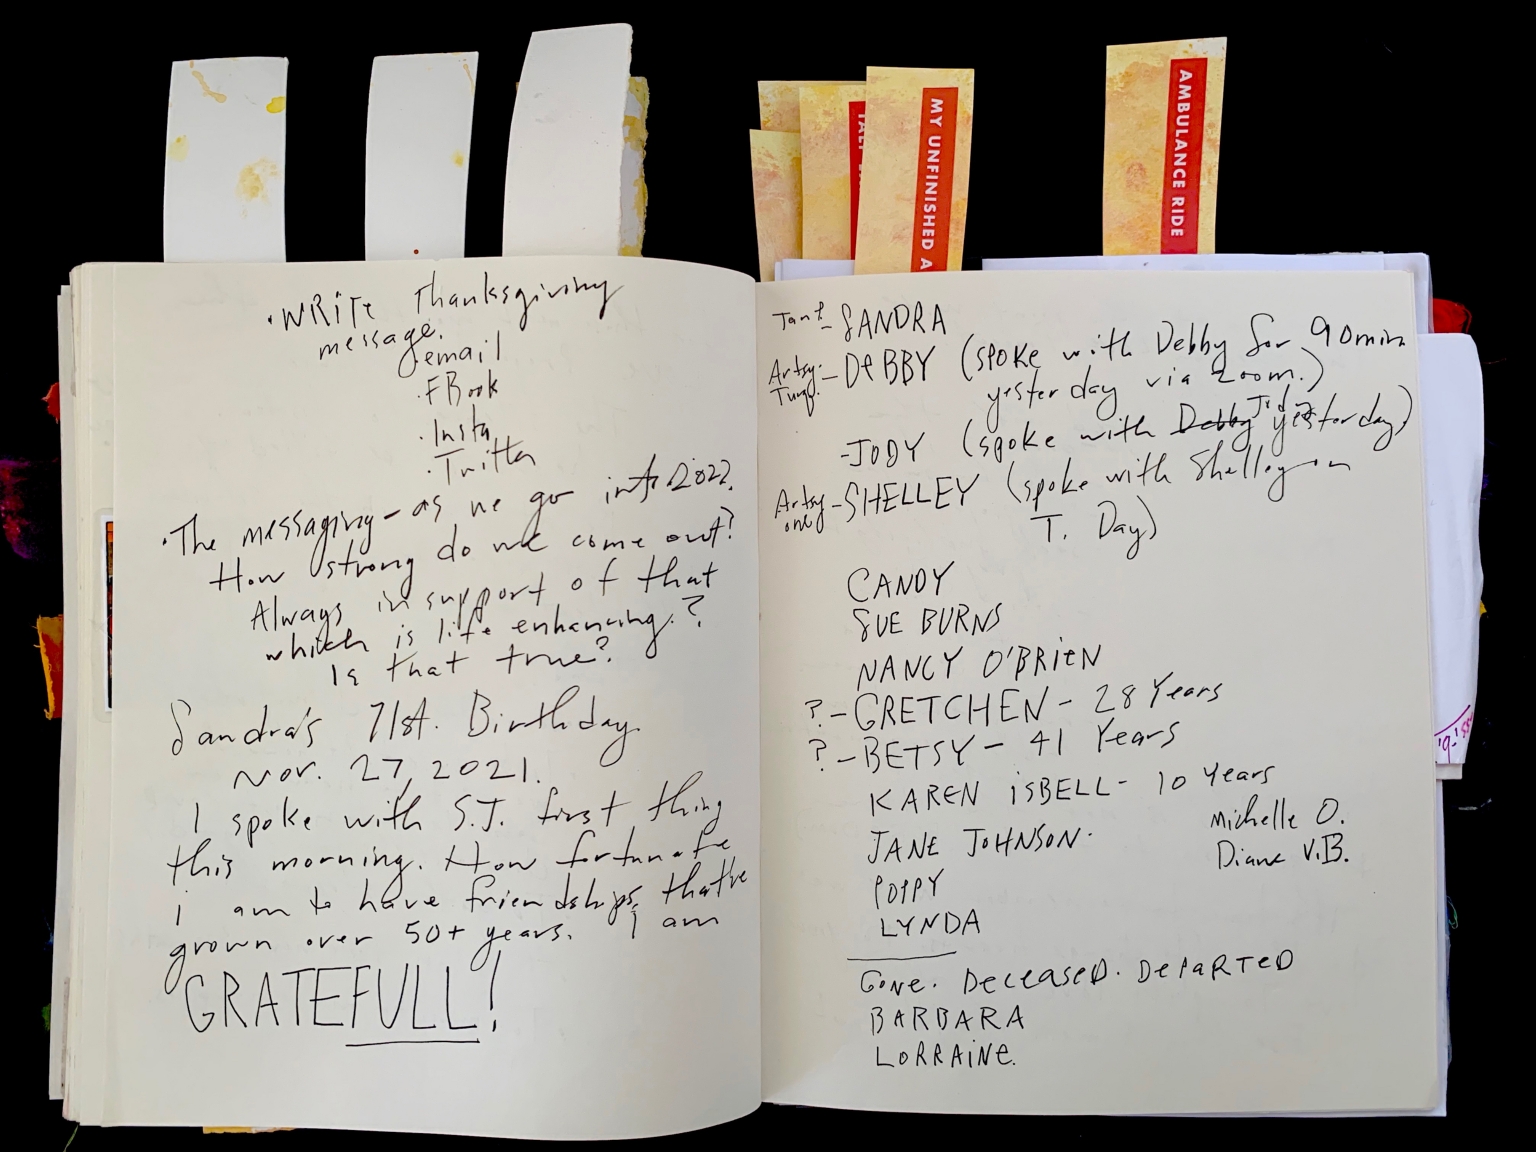 MY UNFINISHED A
AMBULANCE RIDE
· WRITE Thanksgiving
message.
· email
· FBook
· Insta
· Twitter
· The messaging - as we go into 2022.
How strong do we come out?
Always in support of that
which is life enhancing.?
Is that true?
Sandra's 71st. Birthday
Nov. 27, 2021.
I spoke with S.J. first thing
this morning. How fortunate
i am to have friendships, that've
grown over 50+ years. I am
GRATEFULL!
- SANDRA
Artsy - DEBBY (spoke with Debby for 90 min
yesterday via zoom.)
- JODY (spoke with Debby Jody yesterday)
Artsy one - SHELLEY (spoke with Shelley on
T. Day)
CANDY
SUE BURNS
NANCY O'BRIEN
? - GRETCHEN - 28 Years
? - BETSY - 41 Years
KAREN ISBELL - 10 Years
Michelle O.
JANE JOHNSON.
Diane V.B.
POPPY
LYNDA
GONE. DECEASED. DEPARTED
BARBARA
LORRAINE.